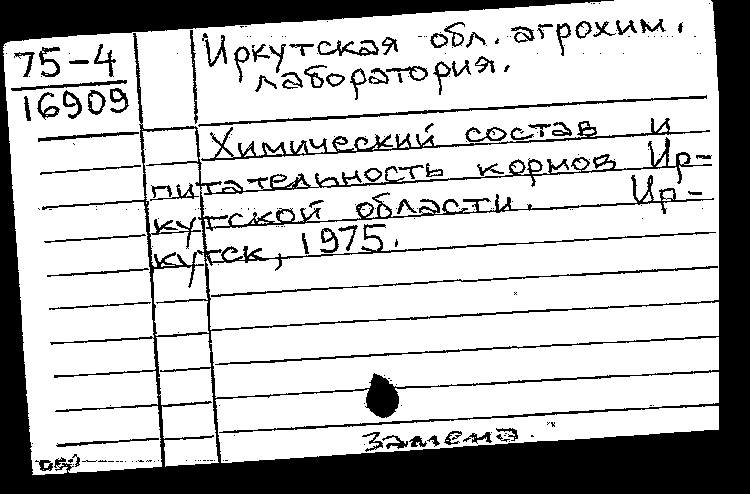 75-4
16909
Иркутская обл. агрохим.
лаборатория.
Химический состав и
питательность кормов Ир-
кутской области. Ир-
кутск, 1975.
Замена.